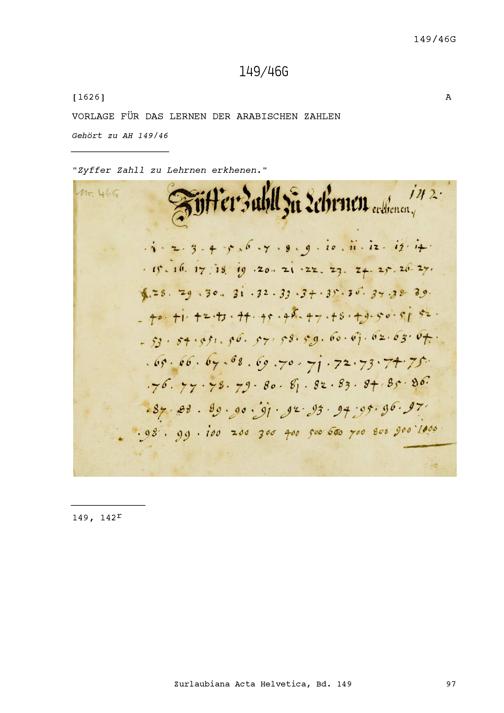 149/46G
149/46G
[1626] A
VORLAGE FÜR DAS LERNEN DER ARABISCHEN ZAHLEN
Gehört zu AH 149/46
"Zyffer Zahll zu Lehrnen erkhenen."
Nr. 46G
142.
Zyffer Zahll zu Lehrnen erkhenen,
. 1 . 2 . 3 . 4 . 5 . 6 . 7 . 8 . 9 . 10 . 11 . 12 . 13 . 14 .
. 15 . 16 . 17 . 18 . 19 . 20 . 21 . 22 . 23 . 24 . 25 . 26 . 27 .
. 28 . 29 . 30 . 31 . 32 . 33 . 34 . 35 . 36 . 37 . 38 . 39 .
. 40 . 41 . 42 . 43 . 44 . 45 . 46 . 47 . 48 . 49 . 50 . 51 . 52 .
. 53 . 54 . 55 . 56 . 57 . 58 . 59 . 60 . 61 . 62 . 63 . 64 .
. 65 . 66 . 67 . 68 . 69 . 70 . 71 . 72 . 73 . 74 . 75 .
. 76 . 77 . 78 . 79 . 80 . 81 . 82 . 83 . 84 . 85 . 86 .
. 87 . 88 . 89 . 90 . 91 . 92 . 93 . 94 . 95 . 96 . 97 .
. 98 . 99 . 100 200 300 400 500 600 700 800 900 1000
149, 142r
Zurlaubiana Acta Helvetica, Bd. 149 97